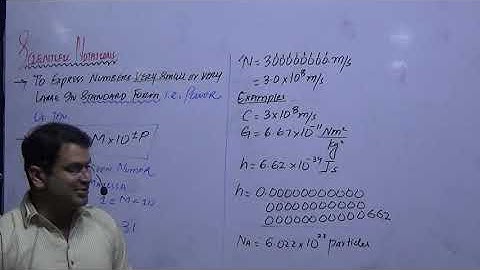 Scientific Notations
→ To Express Numbers Very Small or Very
Large In Standard Form i.e. Power
of Ten
M × 10^±P
1 = M = 10
31
N = 300000000 m/s
= 3.0 × 10^8 m/s
Examples
C = 3 × 10^8 m/s
G = 6.67 × 10^-11 Nm²/kg²
h = 6.62 × 10^-34 Js
h = 0.00000000000
00000000000
00000000000662
NA = 6.022 × 10^23 particles